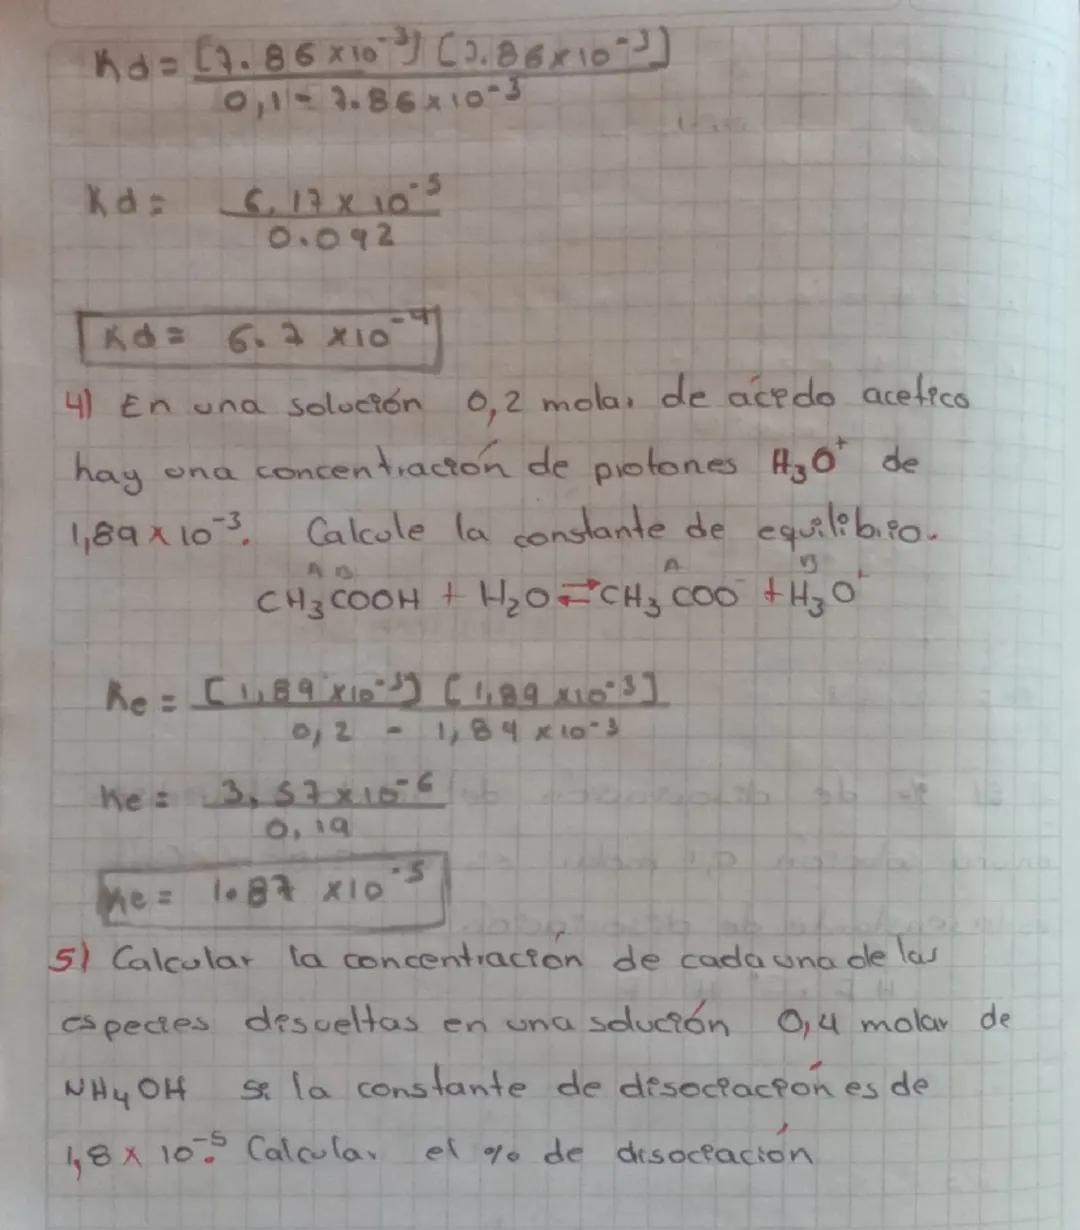 Kd = [7.86 x10⁻³] [7.86x10⁻³]
0,1 - 7.86 x10⁻³
Kd = 6.17 x 10⁻⁵
0.092
Kd = 6.7 x10⁻⁴
4) En una solución 0,2 molar de ácido acetico
hay una concentración de protones H₃O⁺ de
1,89 x 10⁻³. Calcule la constante de equilibrio.
A B A B
CH₃COOH + H₂O ⇄ CH₃COO⁻ + H₃O⁺
Ke = [1,89 x10⁻³] [1,89 x10⁻³]
0,2 - 1,89 x10⁻³
Ke = 3,57 x10⁻⁶
0,19
Ke = 1.87 x10⁻⁵
5) Calcular la concentración de cada una de las
especies disueltas en una solución 0,4 molar de
NH4OH si la constante de disociación es de
1,8 x 10⁻⁵. Calcular el % de disociación